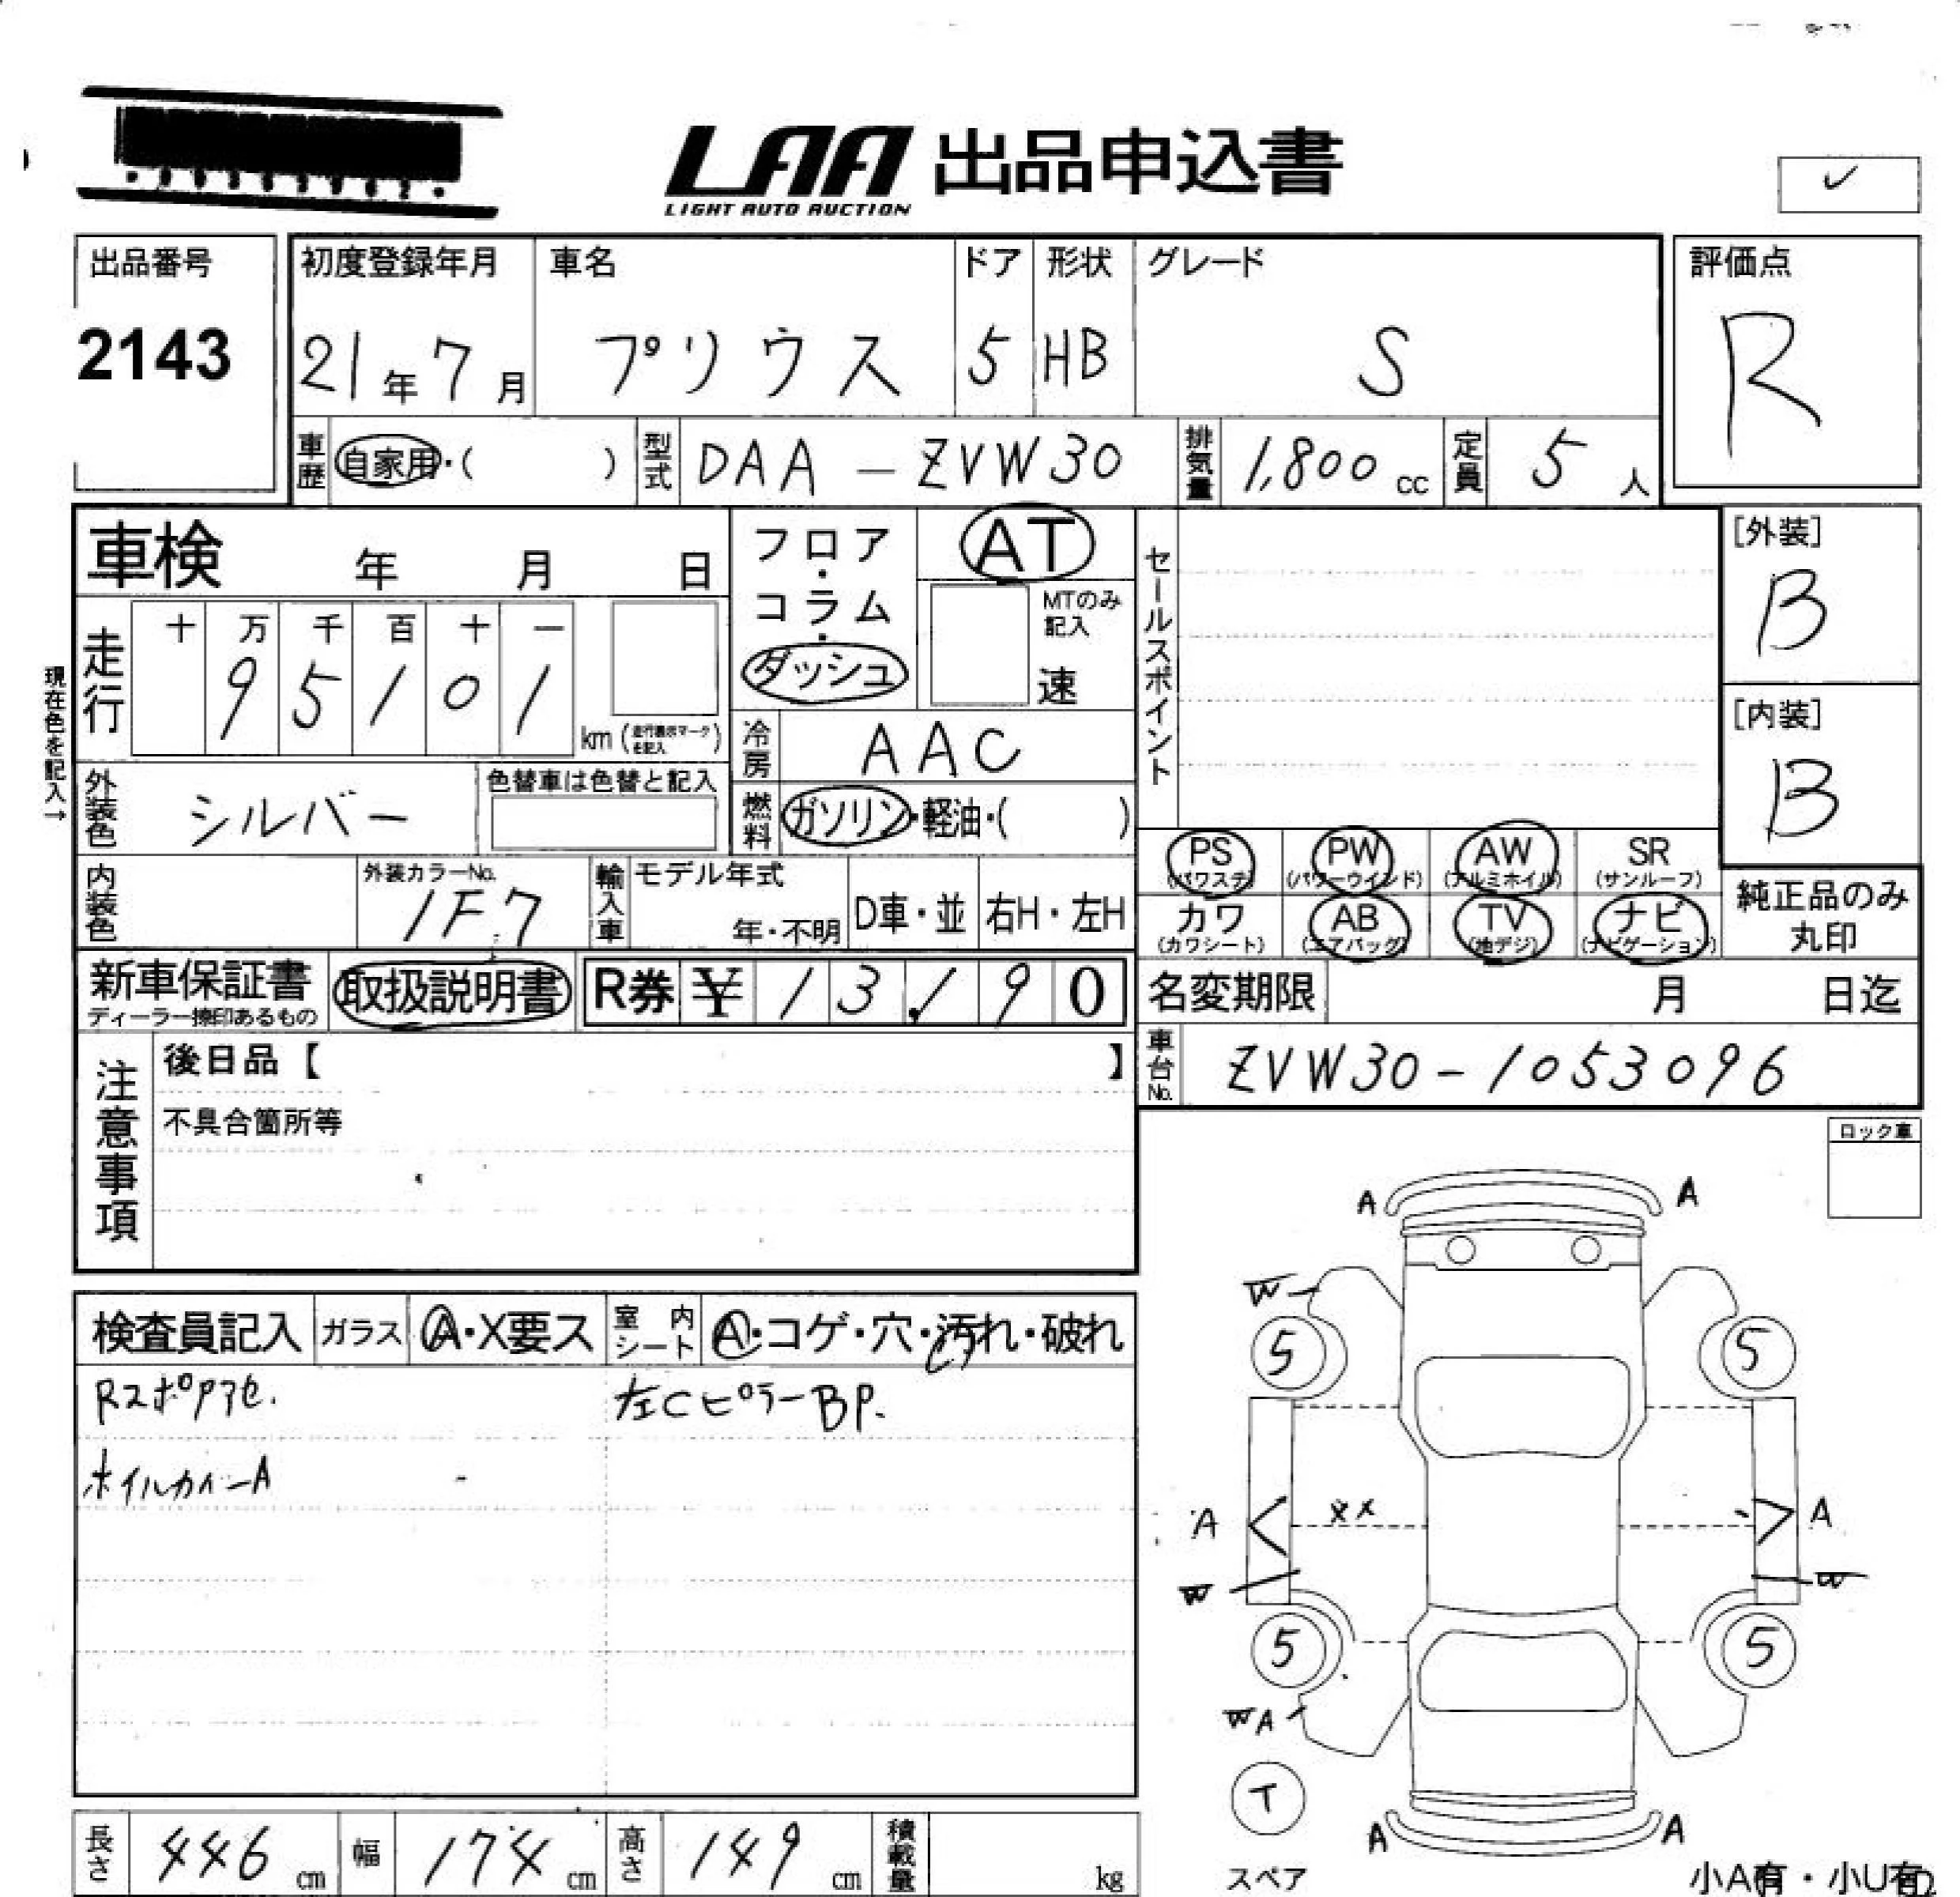 LAA 出品申込書
LIGHT AUTO AUCTION
✓
出品番号
2143
初度登録年月
21年7月
車名
プリウス
ドア
5
形状
HB
グレード
S
評価点
R
車歴 自家用・( )
型式 DAA-ZVW30
排気量 1,800cc
定員 5人
車検 年 月 日
フロア・コラム・ダッシュ
AT
MTのみ記入
速
セールスポイント
[外装]
B
現在色を記入→
走行 十万千百十一
95101 km (走行表示マークを記入)
冷房 AAC
[内装]
B
外装色 シルバー
色替車は色替と記入
燃料 ガソリン・軽油・( )
PS (パワステ) PW (パワーウインド) AW (アルミホイル) SR (サンルーフ)
カワ (カワシート) AB (エアバッグ) TV (地デジ) ナビ (ナビゲーション)
純正品のみ丸印
内装色
外装カラーNo.
1F7
輸入車 モデル年式 年・不明 D車・並 右H・左H
新車保証書 取扱説明書
ディーラー捺印あるもの
R券 ¥13,190
名変期限 月 日迄
車台No. ZVW30-1053096
注意事項
後日品【 】
不具合箇所等
ロック車
検査員記入 ガラス A・X要ス 室内シート A・コゲ・穴・汚れ・破れ
Rスポアセ. 左CピラーBP.
ホイルカバーA
A A
W
5 5
A XX A
W W
5 5
WA
T
スペア
A A
小A有・小U有
長さ 446cm 幅 174cm 高さ 149cm 積載量 kg